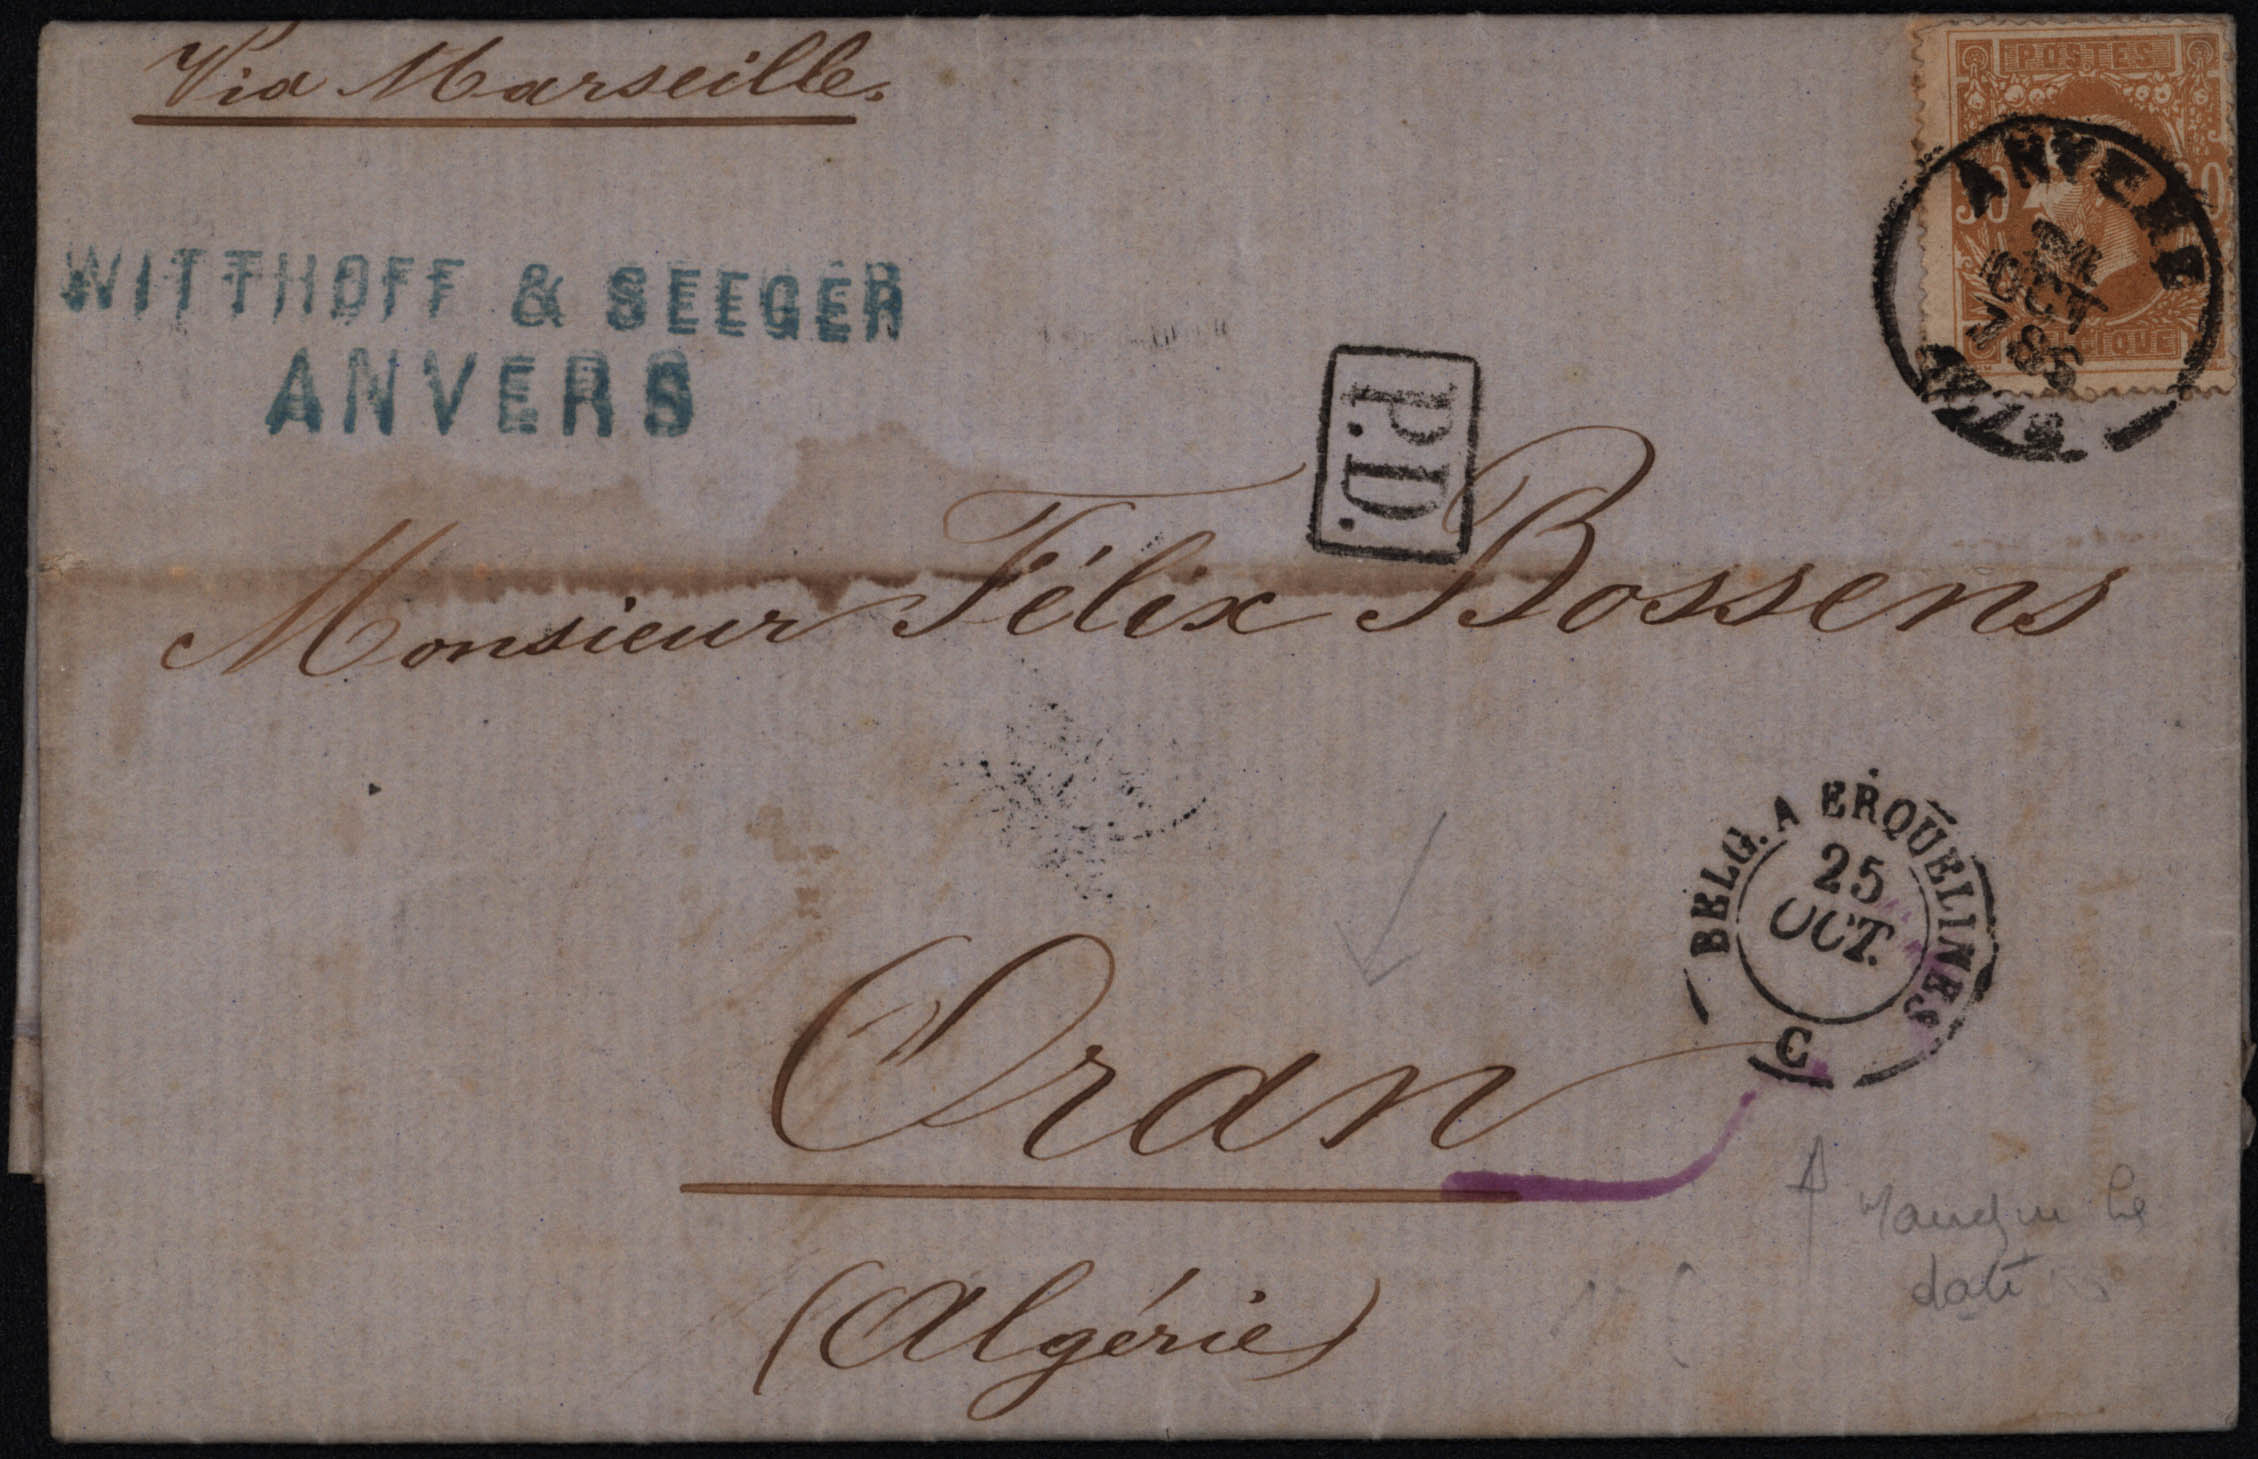 Via Marseille.
POSTES
30 30
ANVERS
OCT
WITTHOFF & SEEGER
ANVERS
P.D.
Monsieur Félix Bossens
BELG. A ERQUELINES
25
OCT.
C
Oran
(Algérie)
Manque le
date